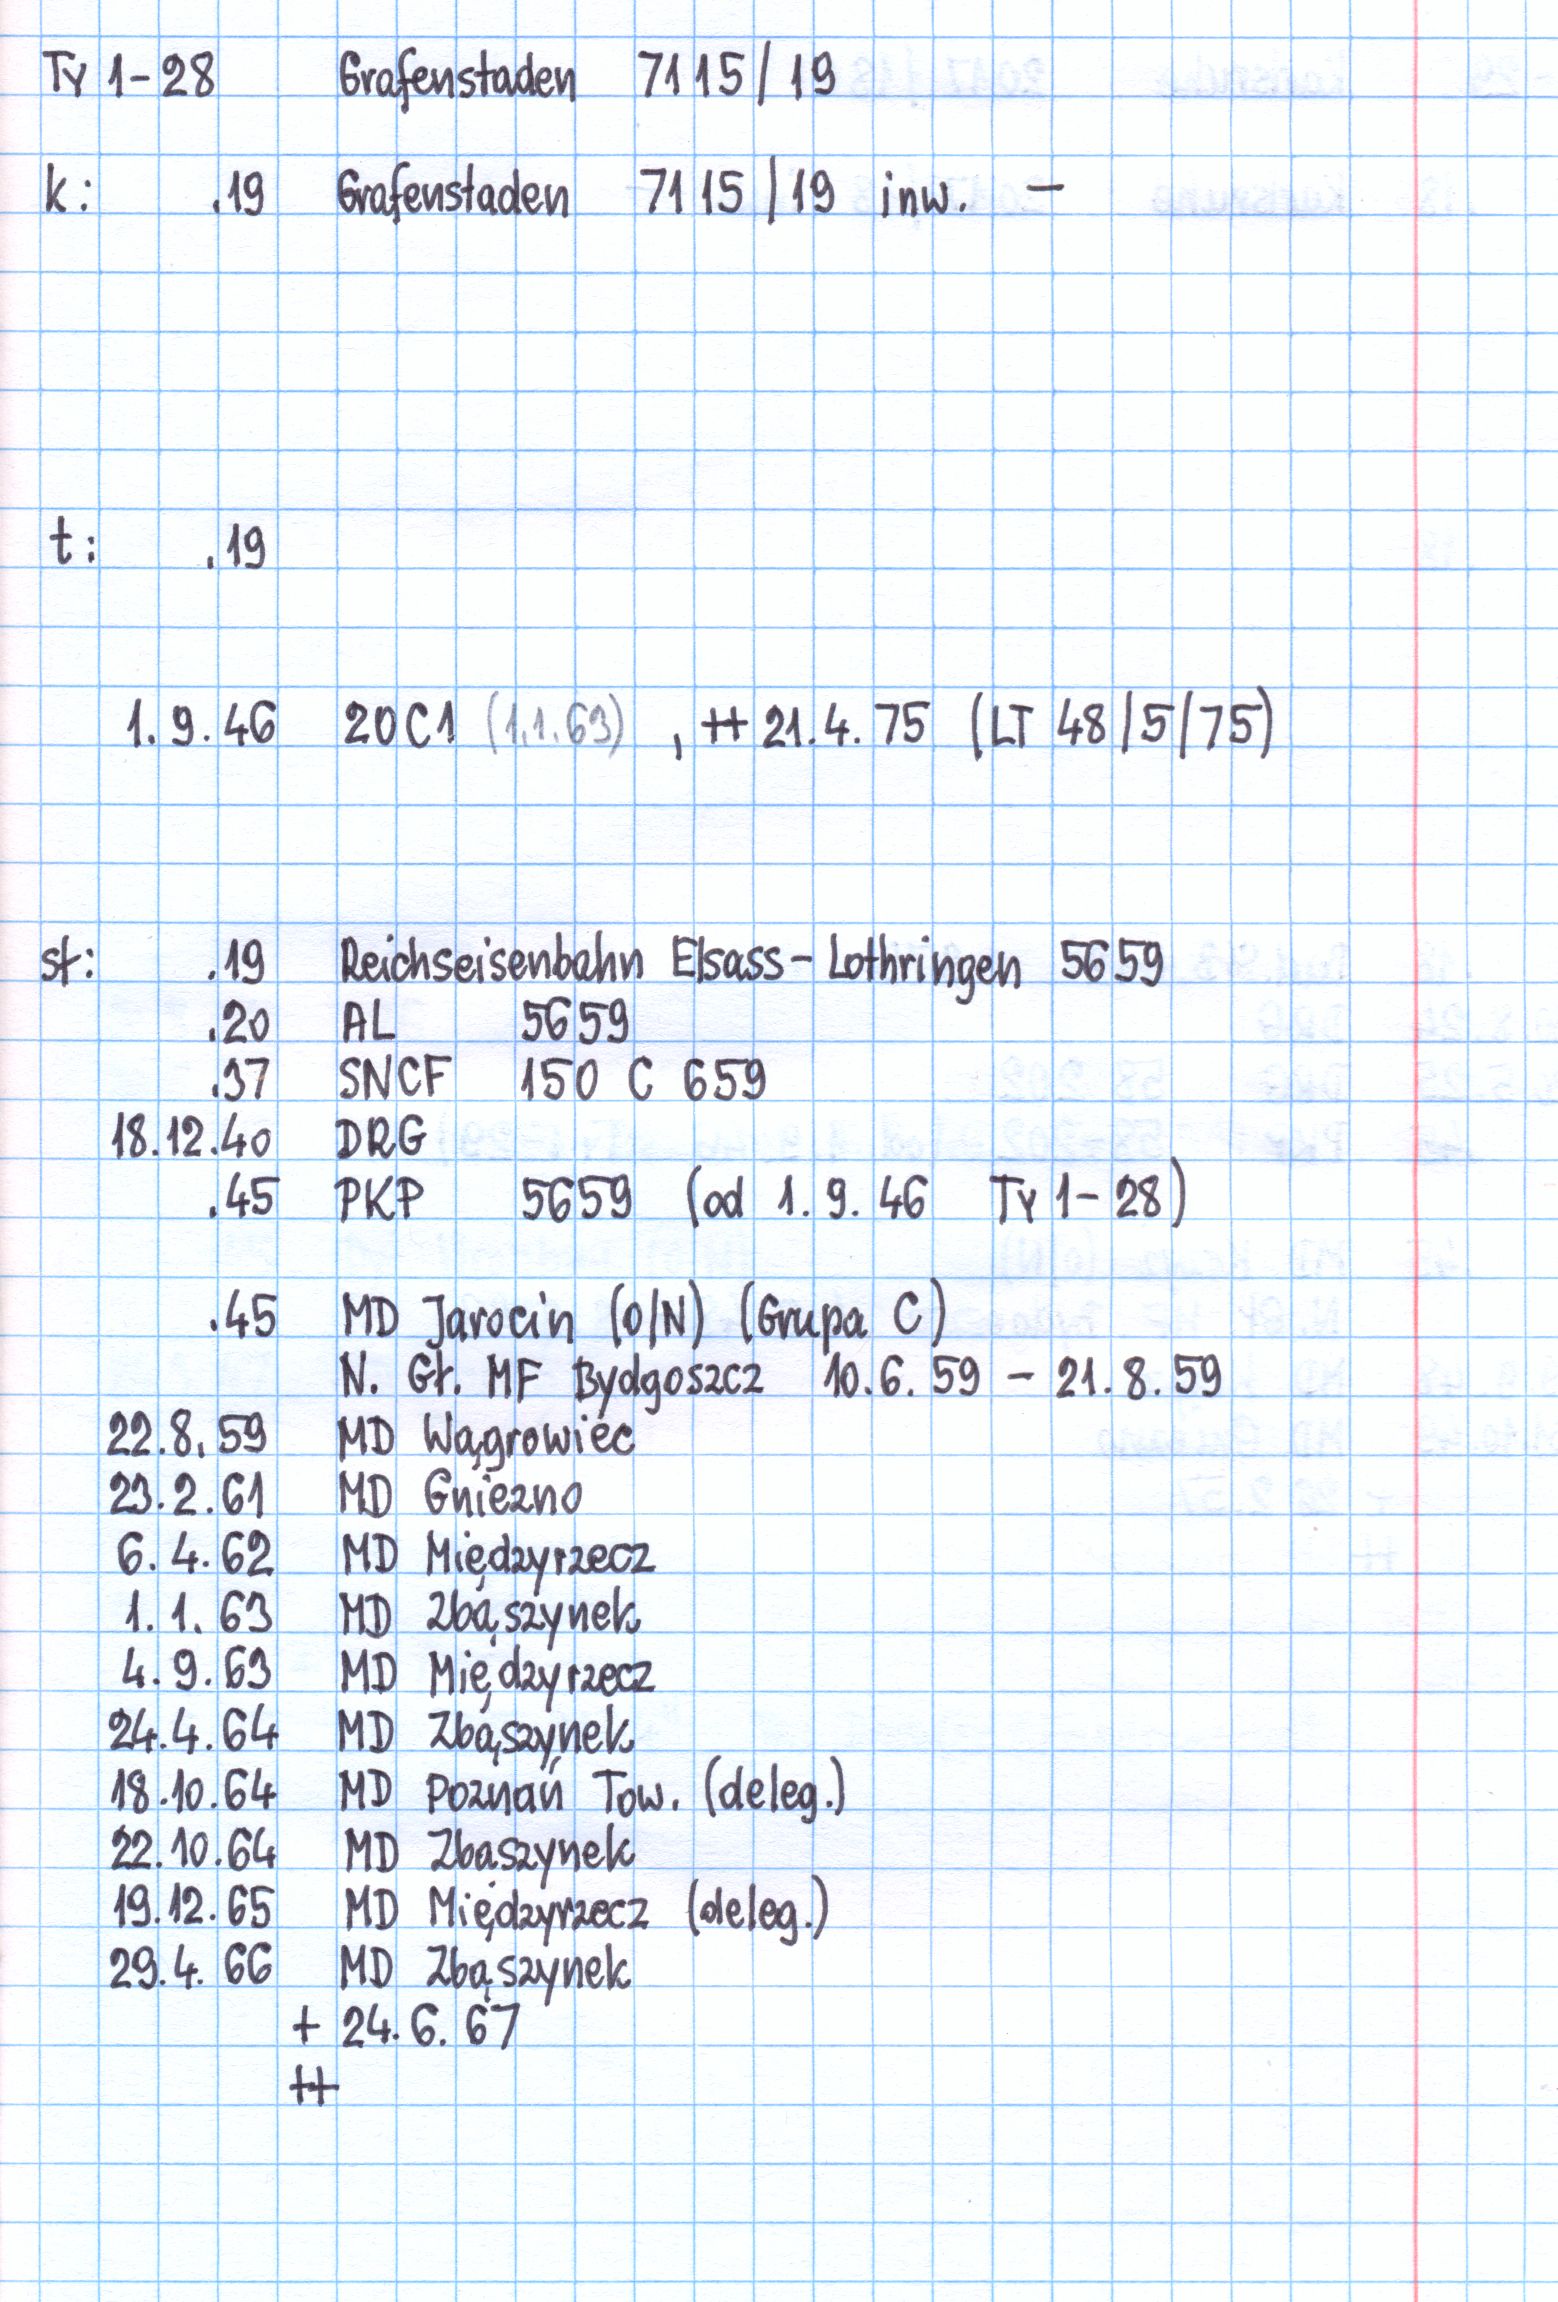 Ty 1-28 Grafenstaden 7115/19
k: .19 Grafenstaden 7115/19 inw. –
t: .19
1.9.46 20C1 (1.1.63) , ++ 21.4.75 (LT 48/5/75)
st: .19 Reichseisenbahn Elsass-Lothringen 5659
.20 AL 5659
.37 SNCF 150 C 659
18.12.40 DRG
.45 PKP 5659 (od 1.9.46 Ty 1-28)
.45 MD Jarocin (O/N) (Grupa C)
N. Gł. MF Bydgoszcz 10.6.59 – 21.8.59
22.8.59 MD Wągrowiec
23.2.61 MD Gniezno
6.4.62 MD Międzyrzecz
1.1.63 MD Zbąszynek
4.9.63 MD Międzyrzecz
24.4.64 MD Zbąszynek
18.10.64 MD Poznań Tow. (deleg.)
22.10.64 MD Zbąszynek
19.12.65 MD Międzyrzecz (deleg.)
29.4.66 MD Zbąszynek
+ 24.6.67
++